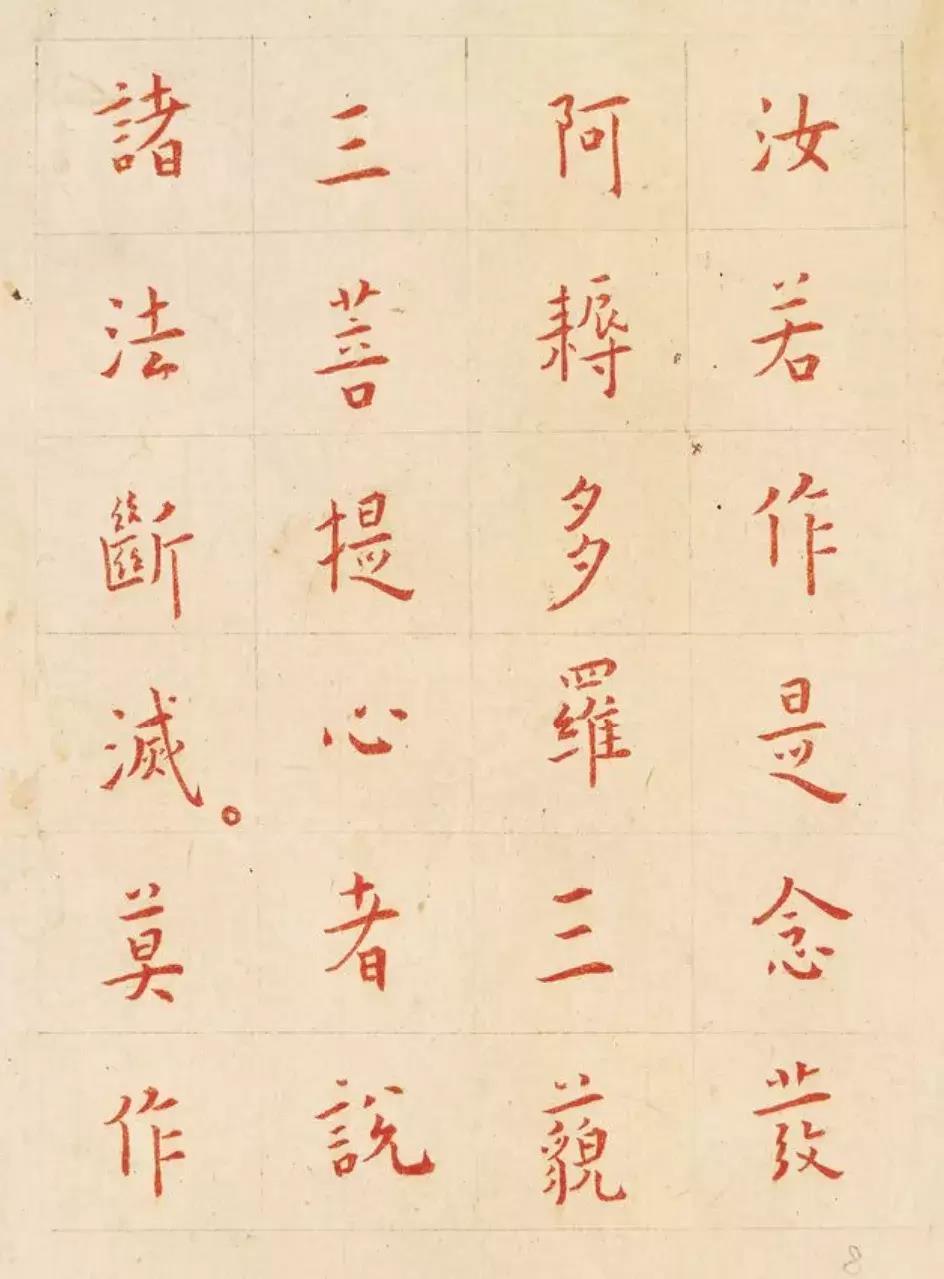 汝若作是念發
阿耨多羅三藐
三菩提心者說
諸法斷滅。莫作
8